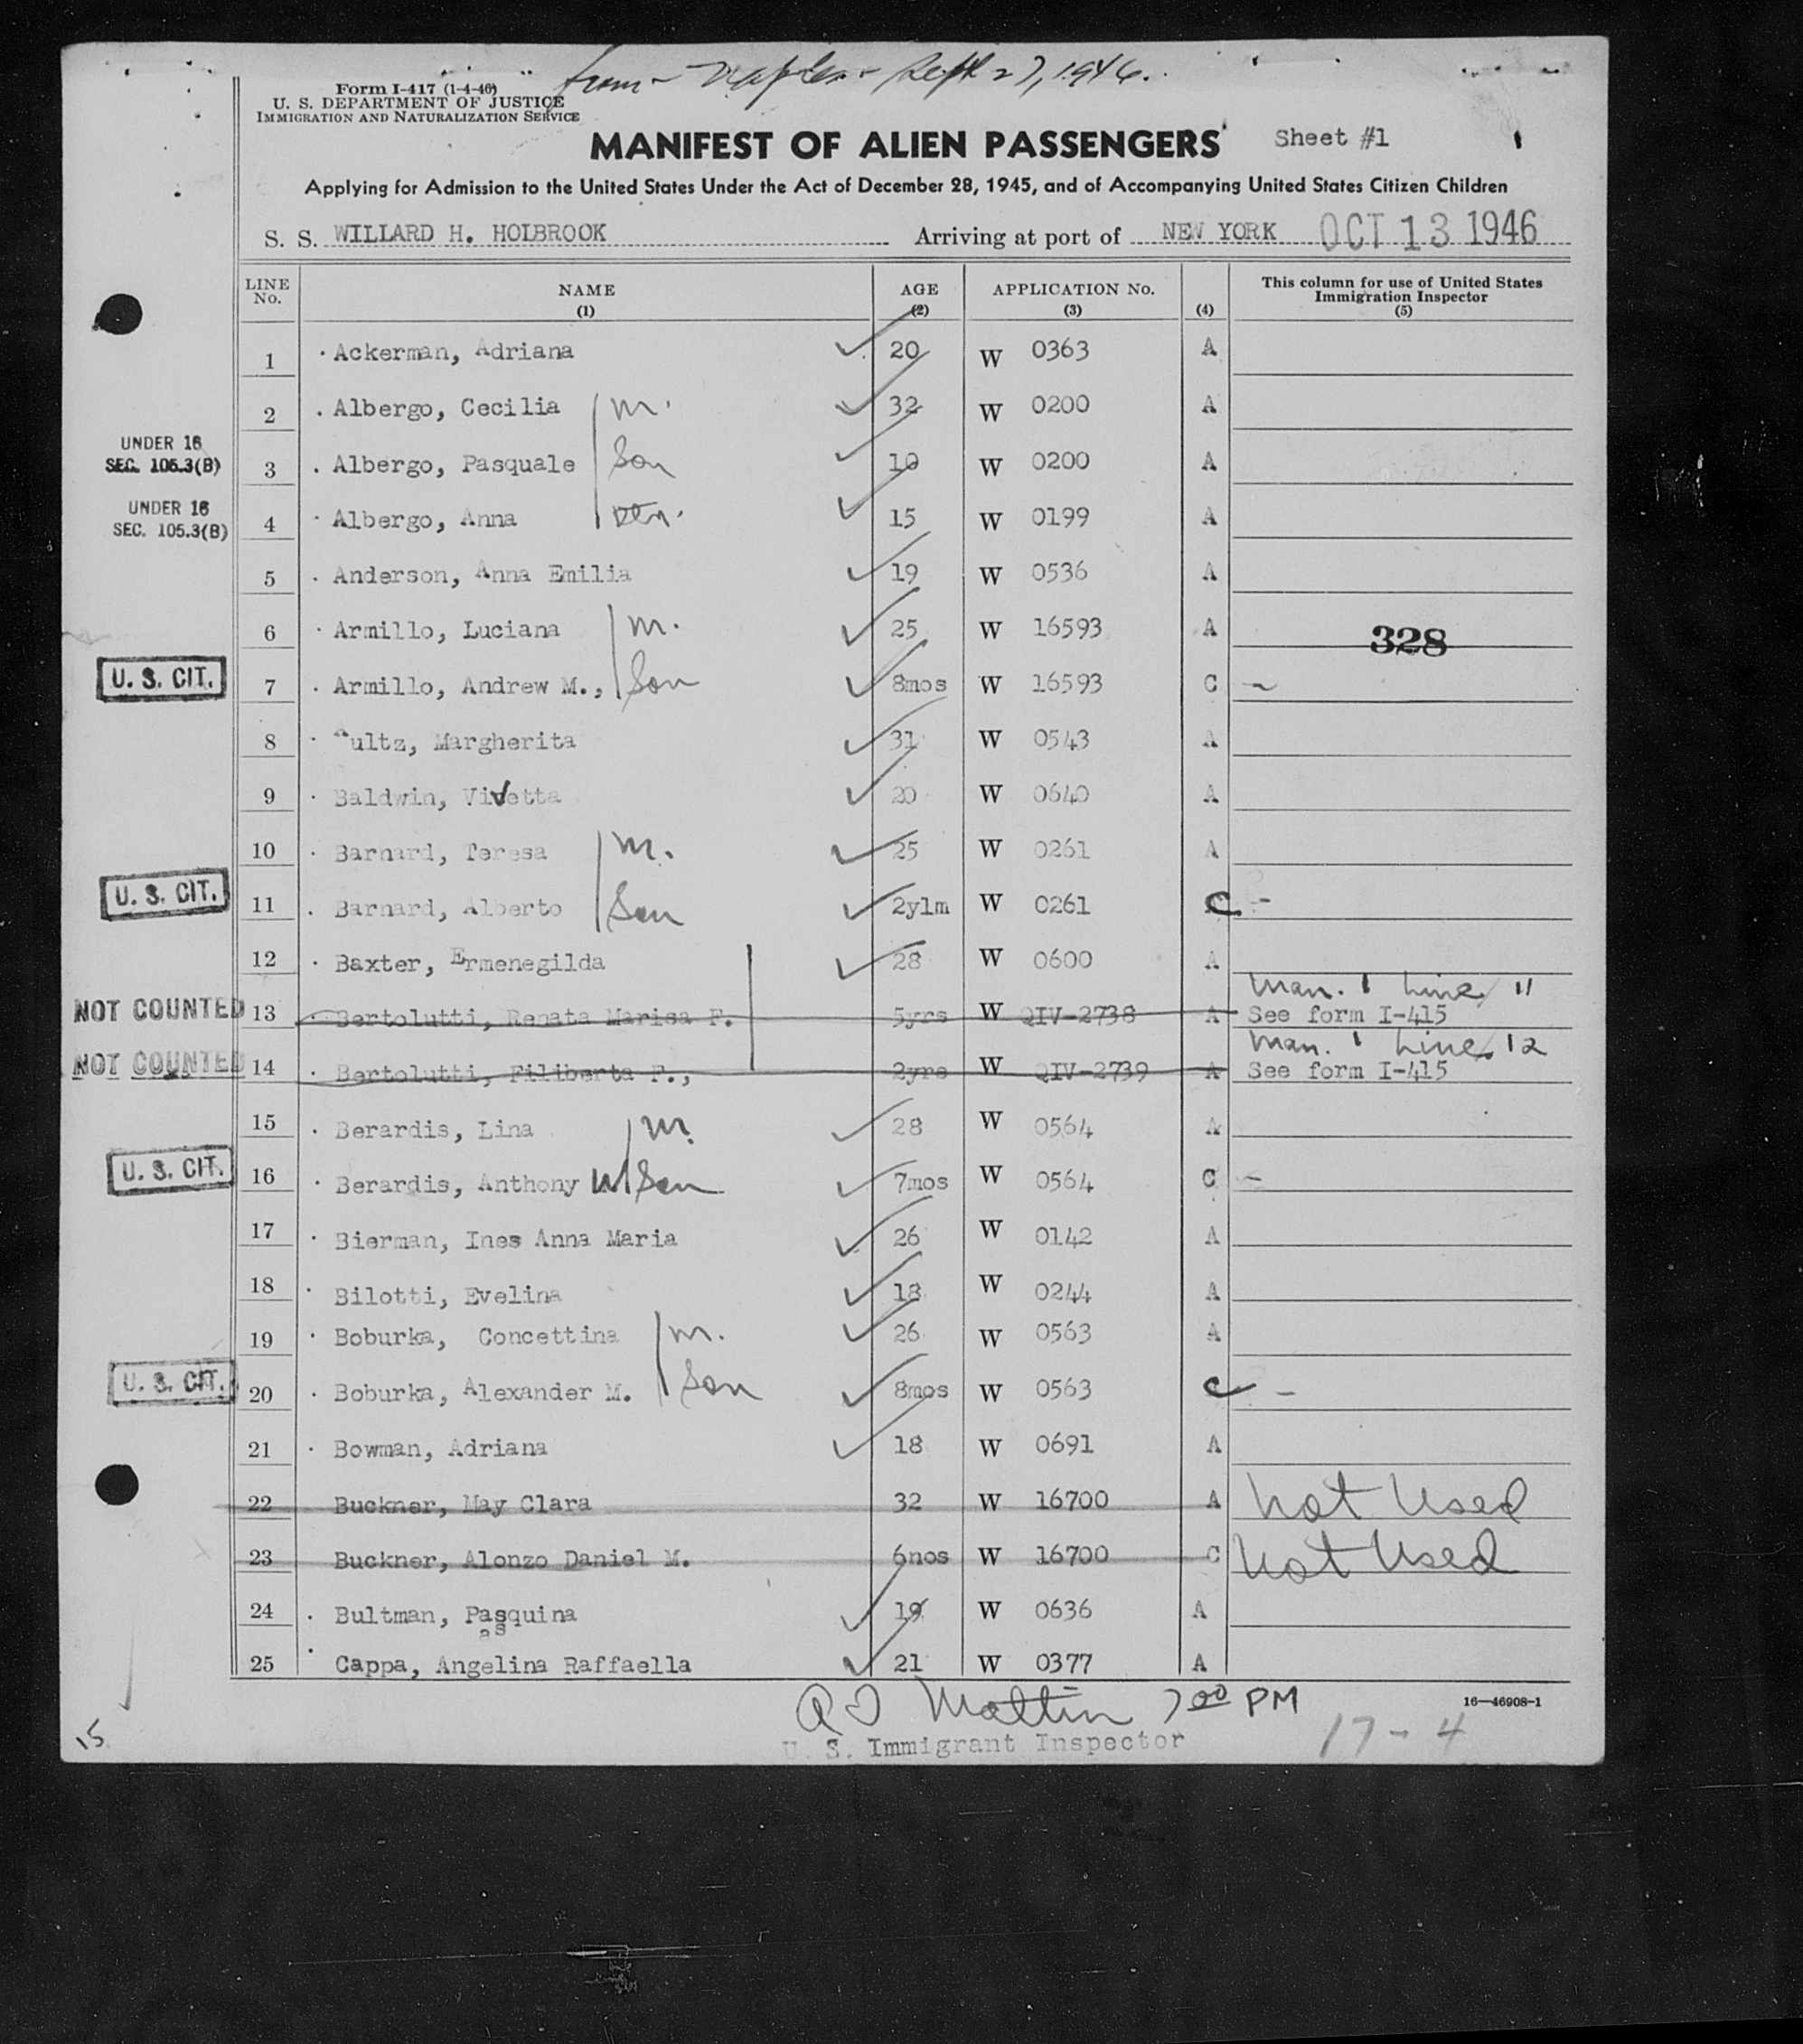 from - Naples - Sept 27, 1946.
Form I-417 (1-4-46)
U. S. DEPARTMENT OF JUSTICE
IMMIGRATION AND NATURALIZATION SERVICE
MANIFEST OF ALIEN PASSENGERS Sheet #1
Applying for Admission to the United States Under the Act of December 28, 1945, and of Accompanying United States Citizen Children
S. S. WILLARD H. HOLBROOK Arriving at port of NEW YORK OCT 13 1946
LINE No. NAME (1) AGE (2) APPLICATION No. (3) (4) This column for use of United States Immigration Inspector (5)
1 Ackerman, Adriana 20 W 0363 A
2 Albergo, Cecilia m. 32 W 0200 A
UNDER 16 SEC. 105.3(B) 3 Albergo, Pasquale Son 10 W 0200 A
UNDER 16 SEC. 105.3(B) 4 Albergo, Anna 15 W 0199 A
5 Anderson, Anna Emilia 19 W 0536 A
6 Armillo, Luciana m. 25 W 16593 A 328
U. S. CIT. 7 Armillo, Andrew M., Son 8mos W 16593 C -
8 Aultz, Margherita 31 W 0543 A
9 Baldwin, Vivetta 20 W 0640 A
10 Barnard, Teresa m. 25 W 0261 A
U. S. CIT. 11 Barnard, Alberto Son 2y1m W 0261 C -
12 Baxter, Ermenegilda 28 W 0600 A
NOT COUNTED 13 Bertolutti, Renata Marisa F. 5yrs W QIV-2738 A Man. 1 Line 11 See form I-415
NOT COUNTED 14 Bertolutti, Filiberta F., 2yrs W QIV-2739 A Man. 1 Line 12 See form I-415
15 Berardis, Lina m. 28 W 0564 A
U. S. CIT. 16 Berardis, Anthony W Son 7mos W 0564 C -
17 Bierman, Ines Anna Maria 26 W 0142 A
18 Bilotti, Evelina 18 W 0244 A
19 Boburka, Concettina m. 26 W 0563 A
U. S. CIT. 20 Boburka, Alexander M. Son 8mos W 0563 C -
21 Bowman, Adriana 18 W 0691 A
22 Buckner, May Clara 32 W 16700 A not Used
23 Buckner, Alonzo Daniel M. 6mos W 16700 C not Used
24 Bultman, Pasquina 19 W 0636 A
as
25 Cappa, Angelina Raffaella 21 W 0377 A
Mattin 7 00 PM 16—46908-1
U. S. Immigrant Inspector 17-4
15